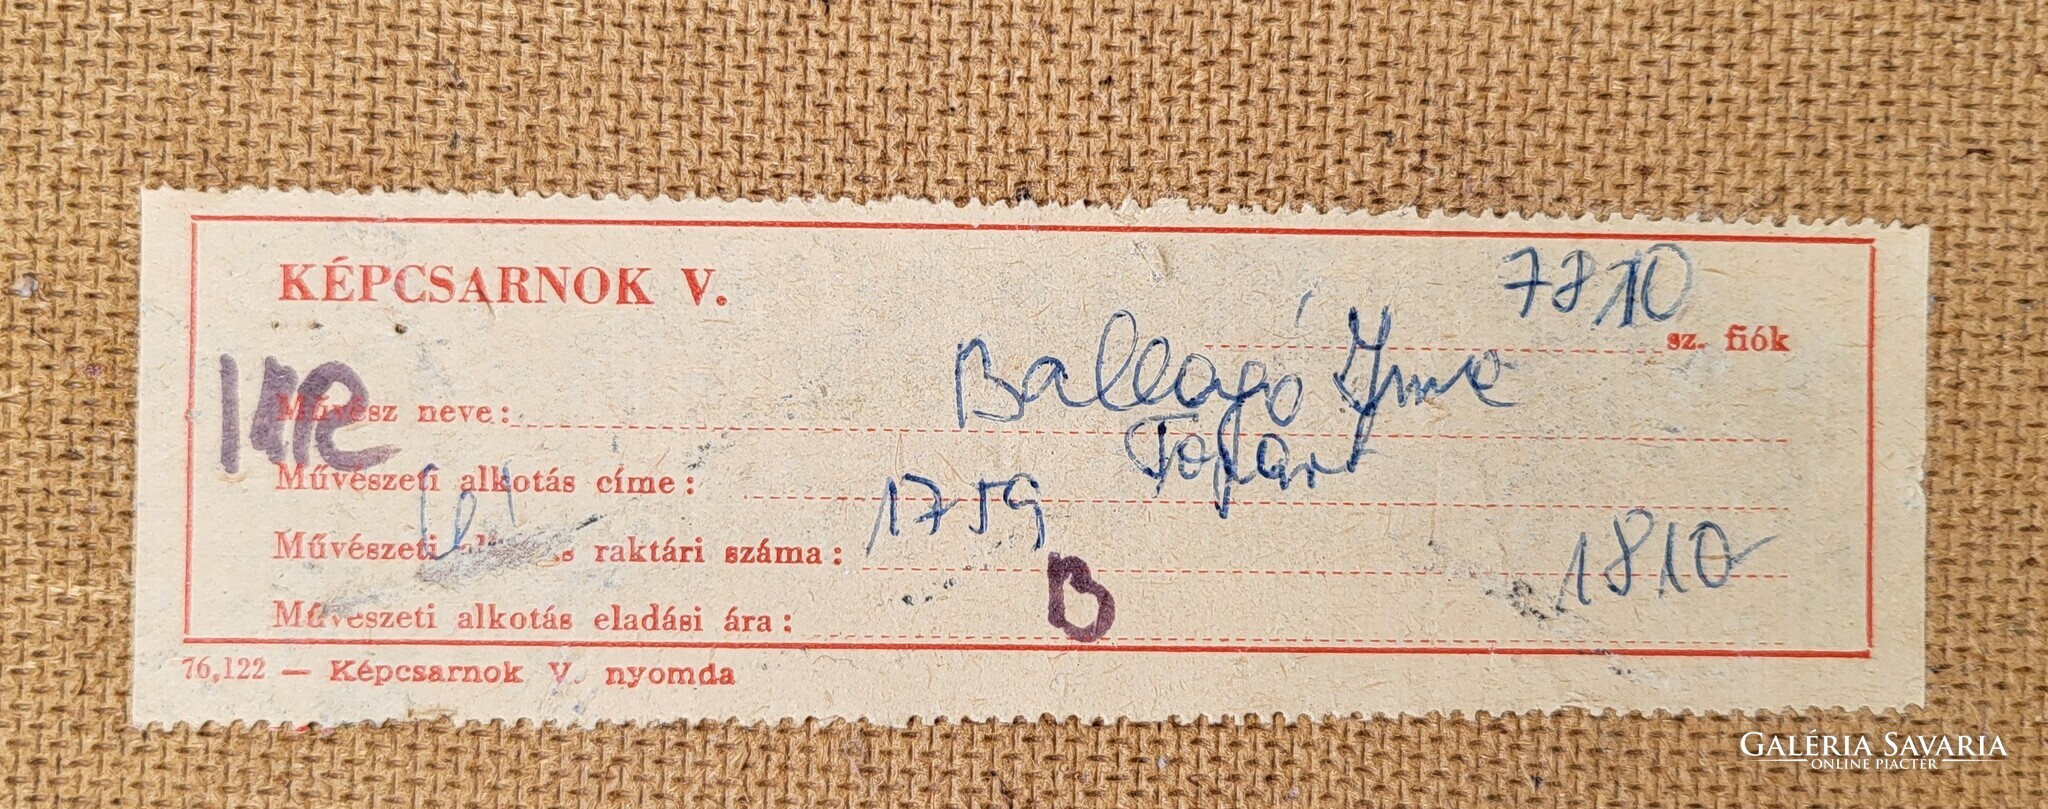 KÉPCSARNOK V.
7810
sz. fiók
Művész neve: Ballagó Imre
Művészeti alkotás címe: Tópart
Művészeti alkotás raktári száma: 1759
1810
Művészeti alkotás eladási ára: B
76,122 — Képcsarnok V. nyomda
GALÉRIA SAVARIA
ONLINE PIACTÉR